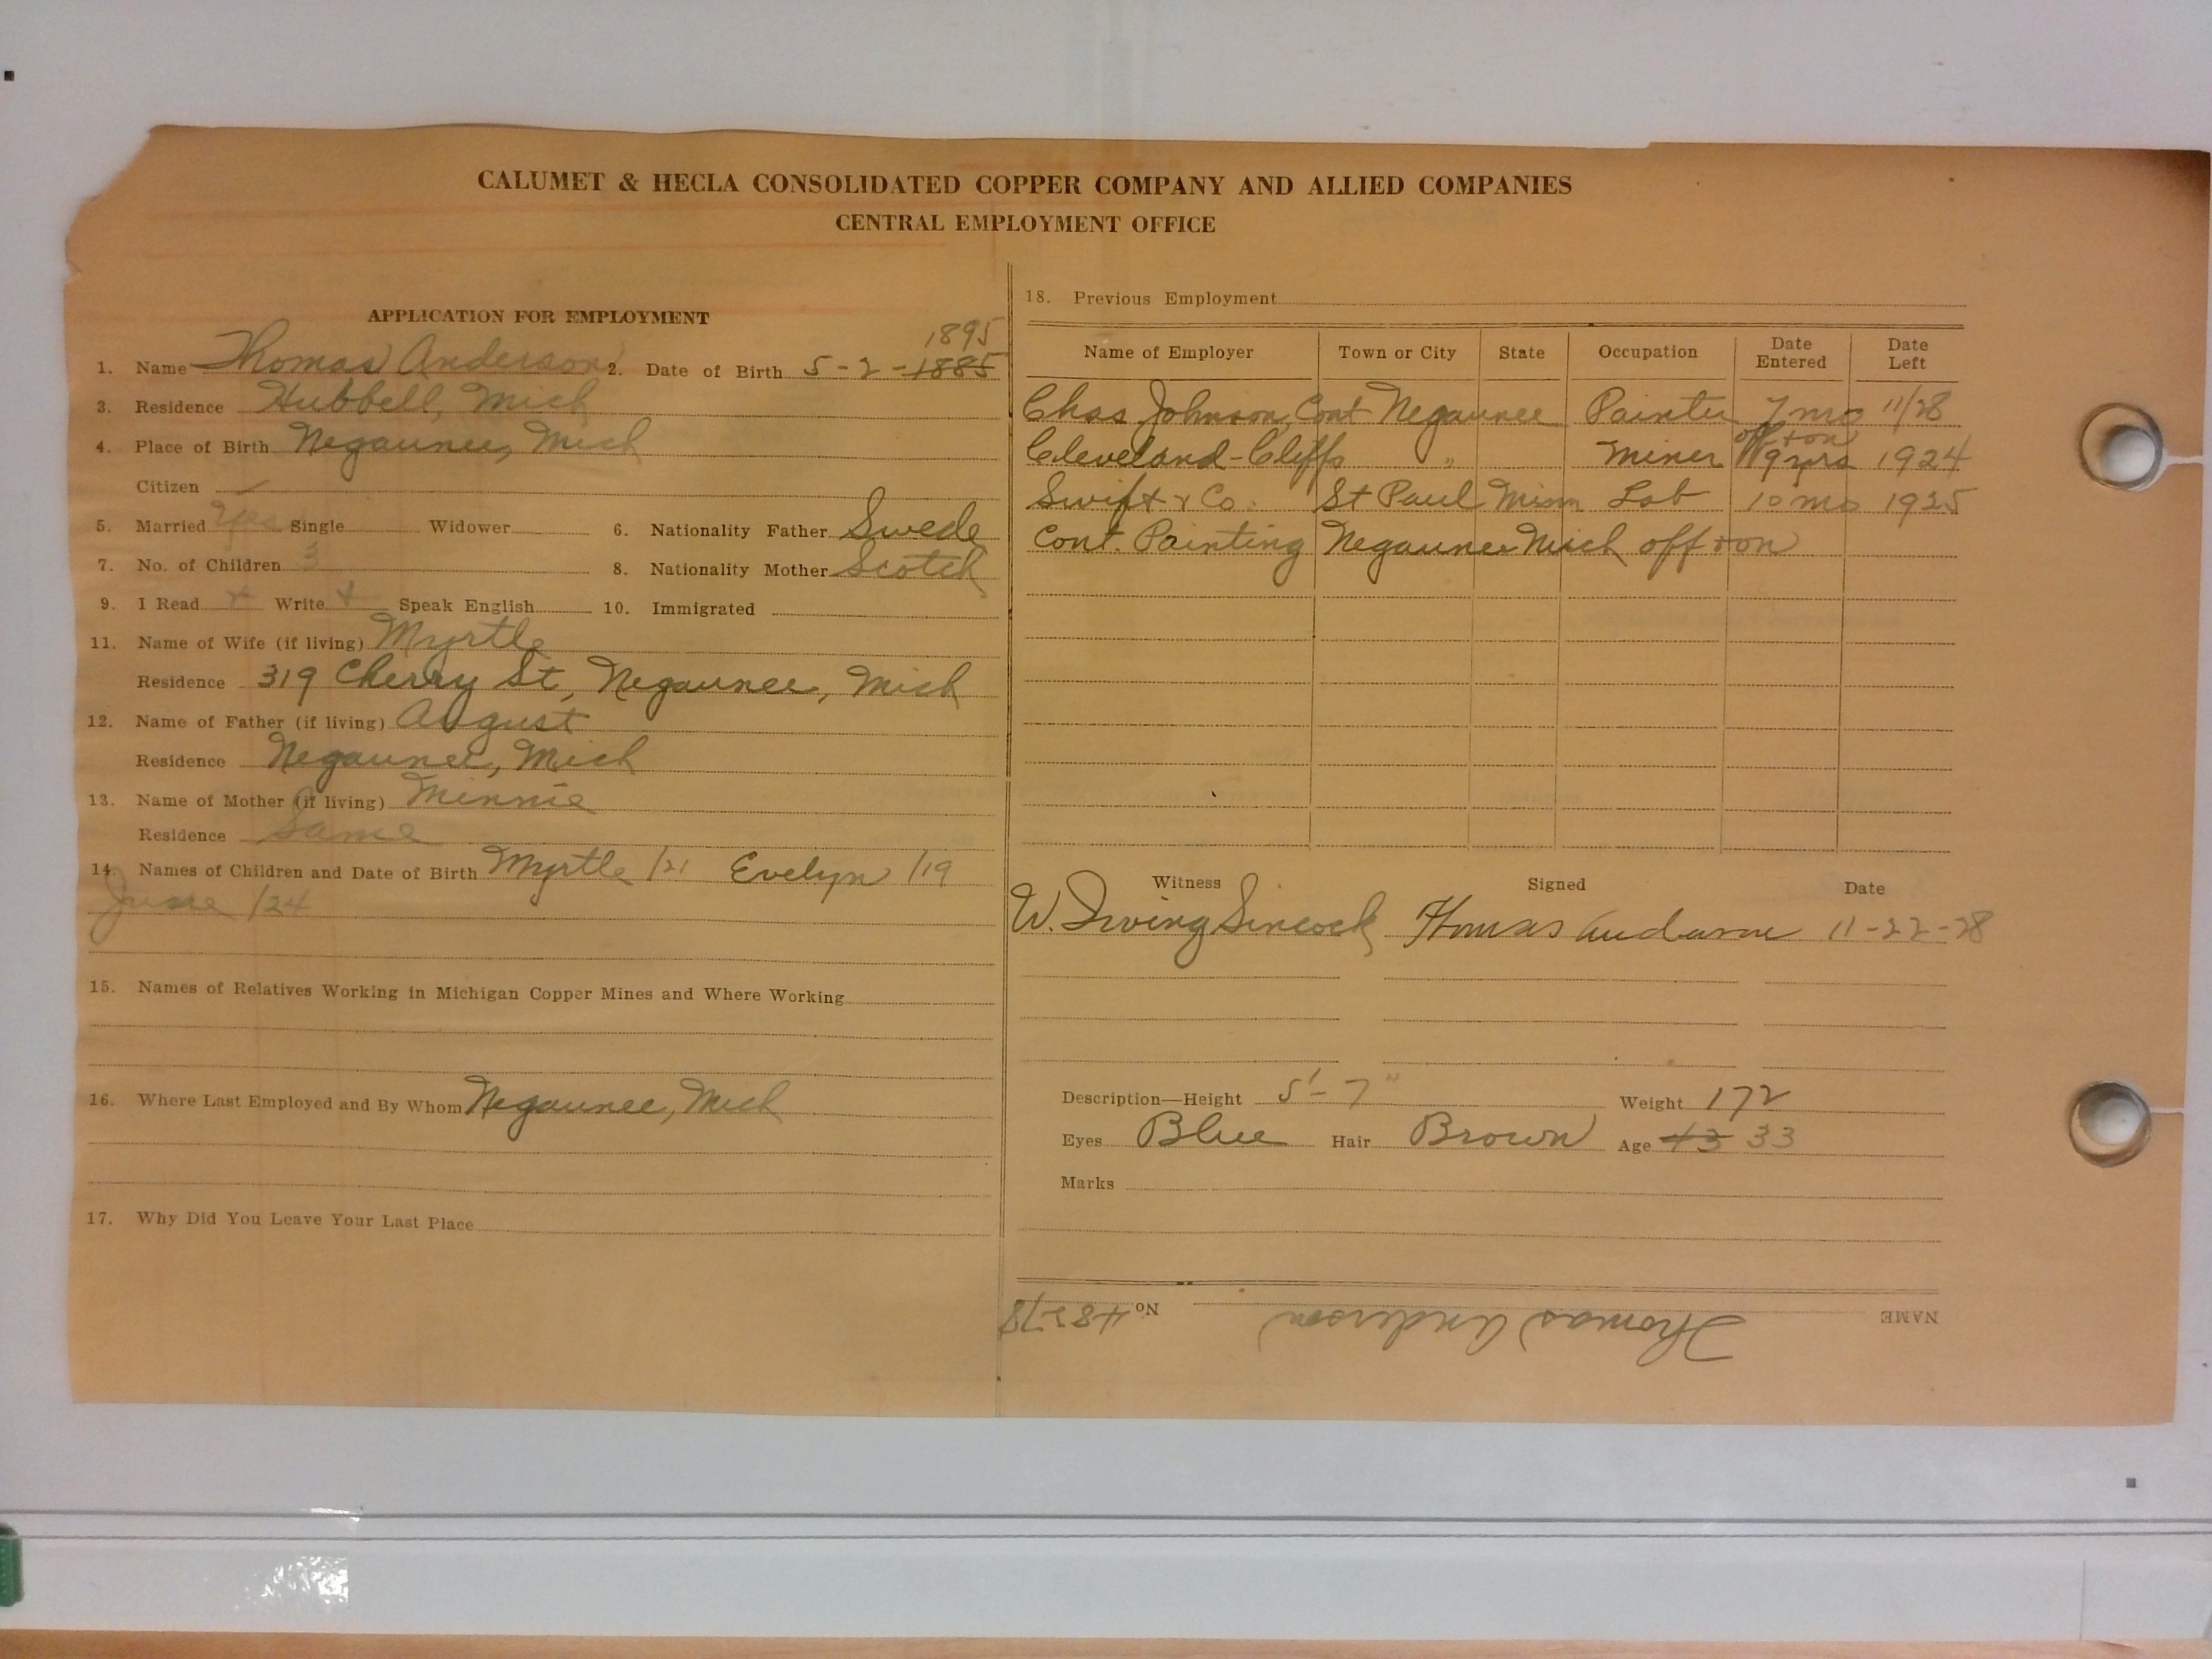 CALUMET & HECLA CONSOLIDATED COPPER COMPANY AND ALLIED COMPANIES
CENTRAL EMPLOYMENT OFFICE
APPLICATION FOR EMPLOYMENT
1895
1. Name Thomas Anderson 2. Date of Birth 5-2-1885
3. Residence Hubbell, Mich
4. Place of Birth Negaunee, Mich
Citizen ✓
5. Married Yes Single Widower 6. Nationality Father Swede
7. No. of Children 3 8. Nationality Mother Scotch
9. I Read x Write x Speak English 10. Immigrated
11. Name of Wife (if living) Myrtle
Residence 319 Cherry St, Negaunee, Mich
12. Name of Father (if living) August
Residence Negaunee, Mich
13. Name of Mother (if living) Minnie
Residence Same
14. Names of Children and Date of Birth Myrtle /21 Evelyn /19
June /24
15. Names of Relatives Working in Michigan Copper Mines and Where Working
16. Where Last Employed and By Whom Negaunee, Mich
17. Why Did You Leave Your Last Place
18. Previous Employment
Name of Employer Town or City State Occupation Date Entered Date Left
Chas Johnson, Cont Negaunee Painter 7 mo 11/28
off + on
Cleveland-Cliffs " Miner 9 yrs 1924
Swift & Co. St Paul Minn Lab 10 mo 1925
Cont. Painting Negaunee Mich off + on
Witness Signed Date
W. Irving Sincock Thomas Anderson 11-22-28
Description—Height 5'-7" Weight 172
Eyes Blue Hair Brown Age 43 33
Marks
NAME Thomas Anderson No.